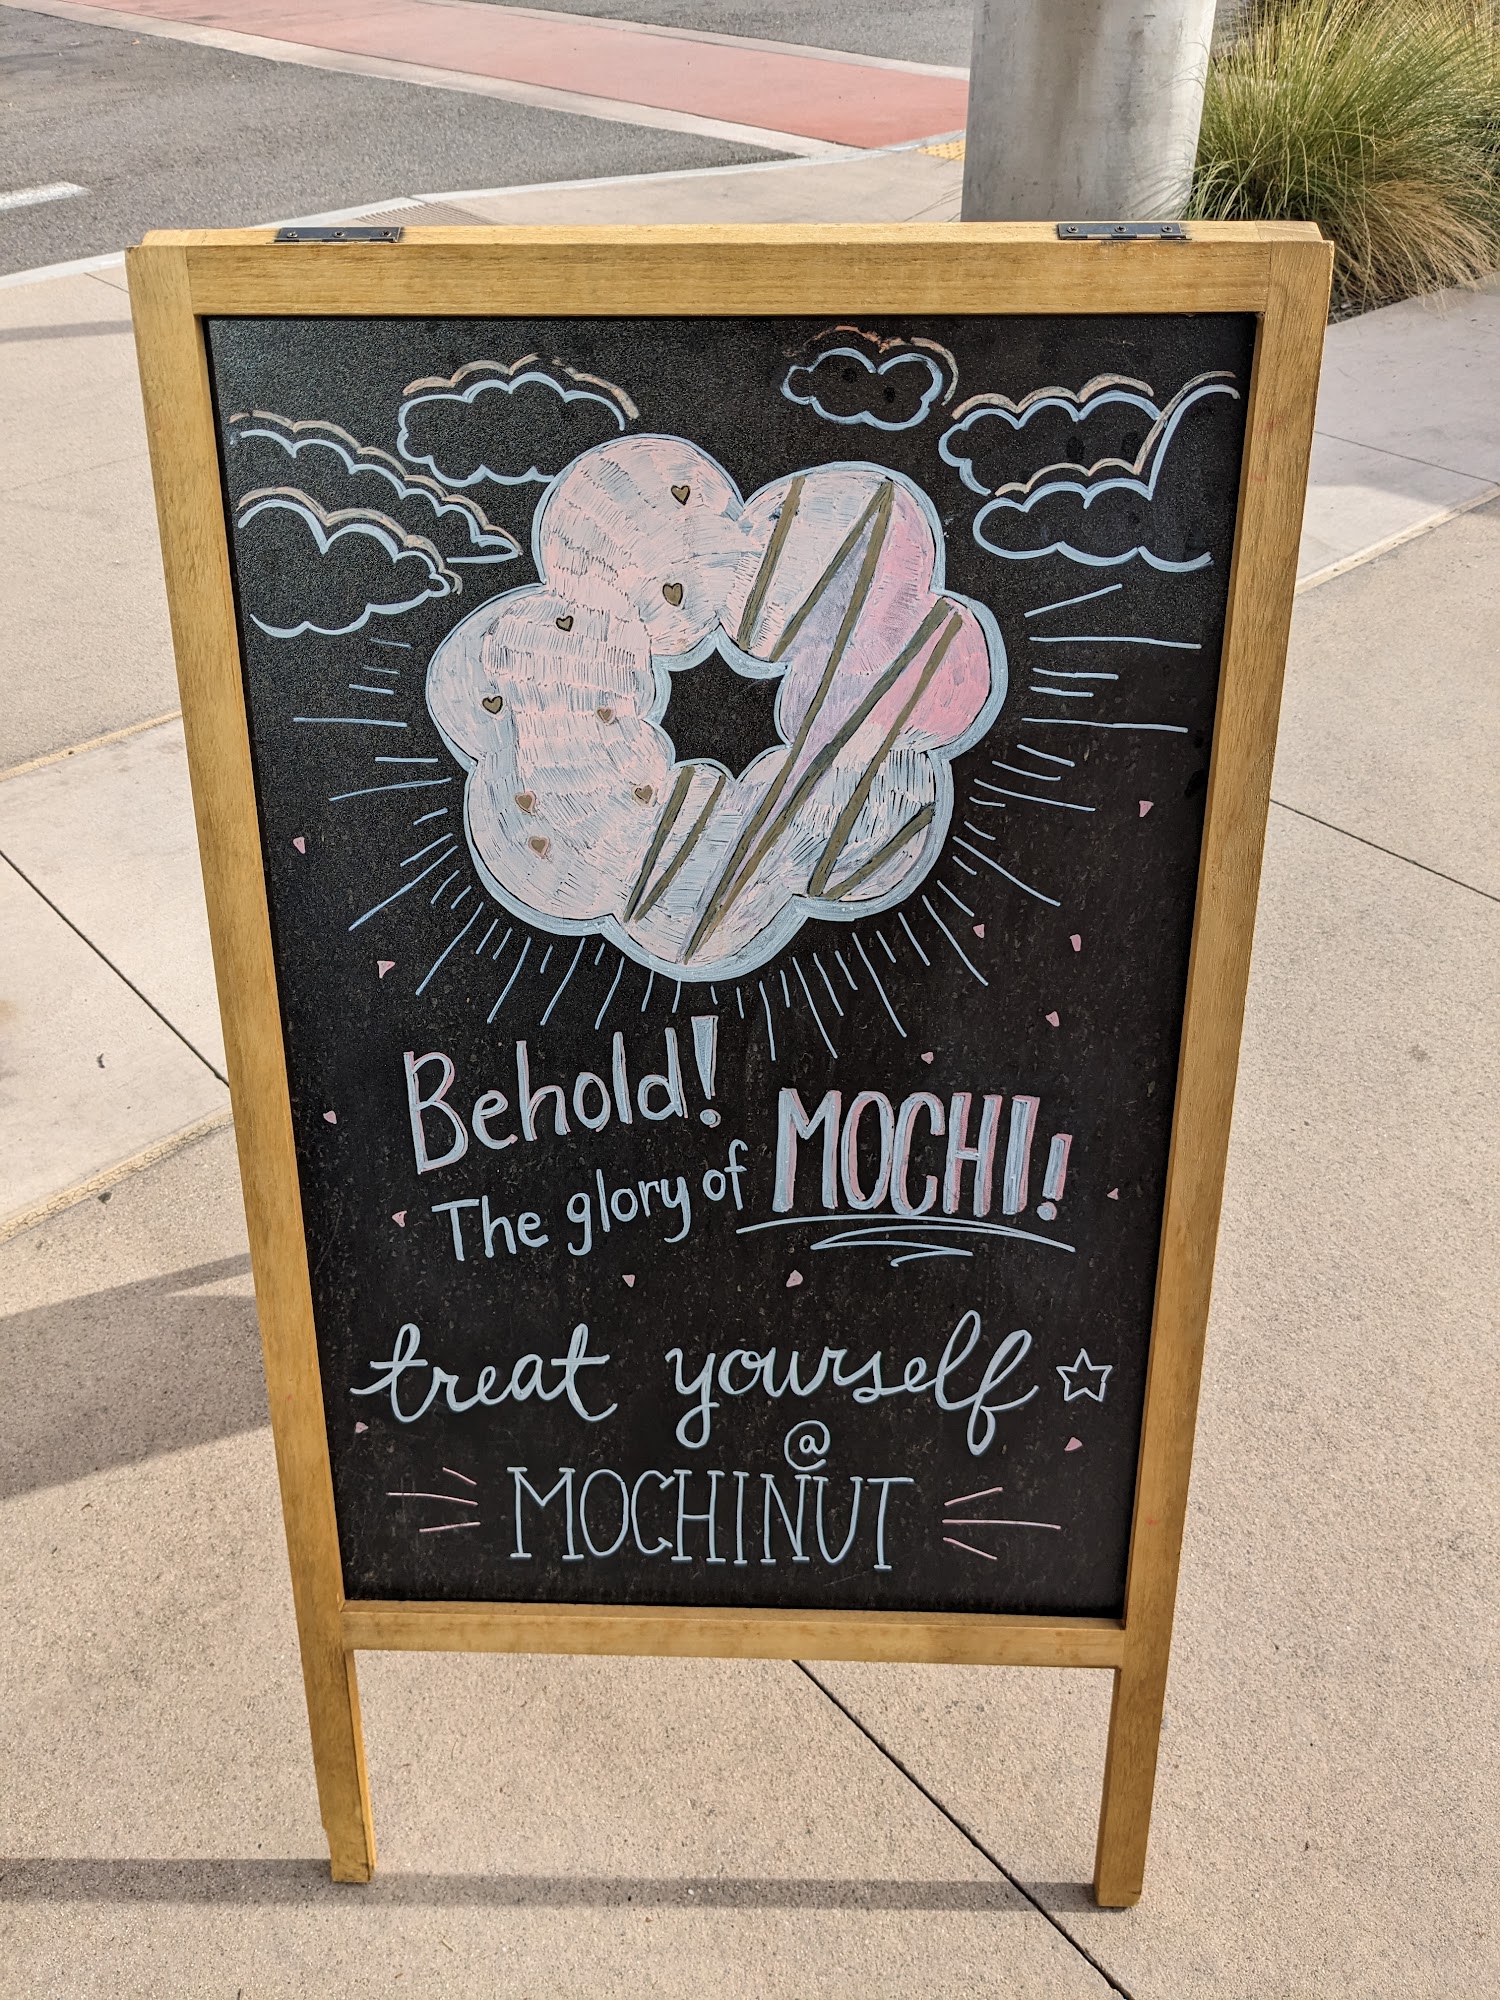 Behold!
The glory of MOCHI!
treat yourself
@
MOCHINUT